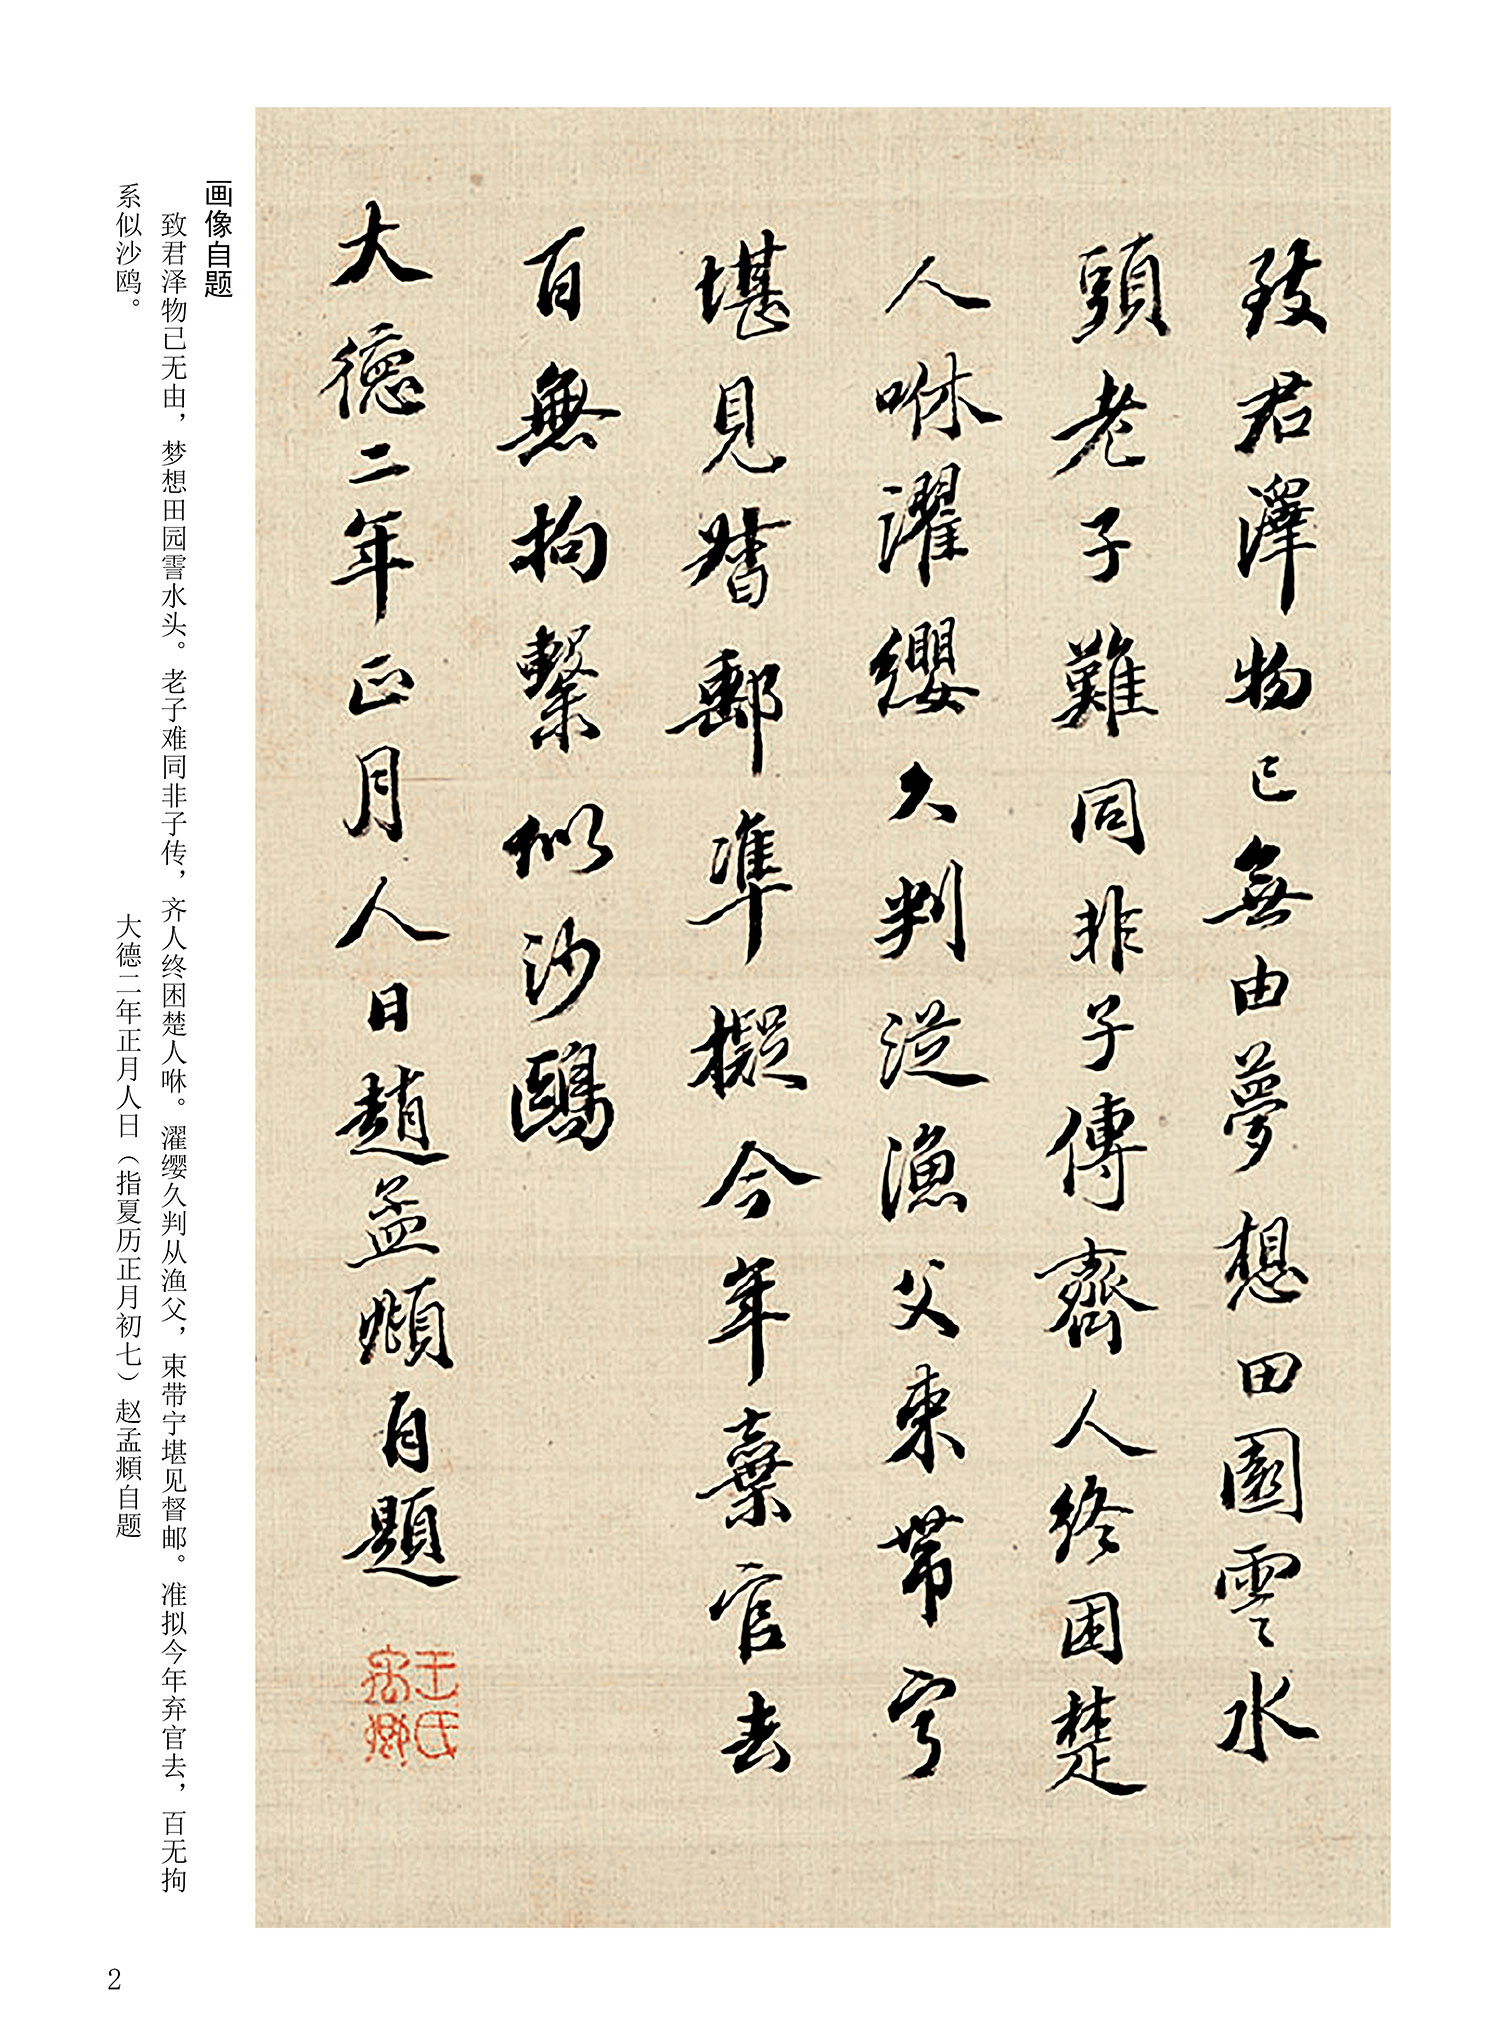 致君澤物已無由夢想田園雪水
頭老子難同非子傳齊人終困楚
人咻濯纓久判從漁父束帶寧
堪見督郵準擬今年棄官去
百無拘繫似沙鷗
大德二年正月人日趙孟頫自題
画像自题
致君泽物已无由，梦想田园霅水头。老子难同非子传，齐人终困楚人咻。濯缨久判从渔父，束带宁堪见督邮。准拟今年弃官去，百无拘
系似沙鸥。
大德二年正月人日（指夏历正月初七）赵孟頫自题
2